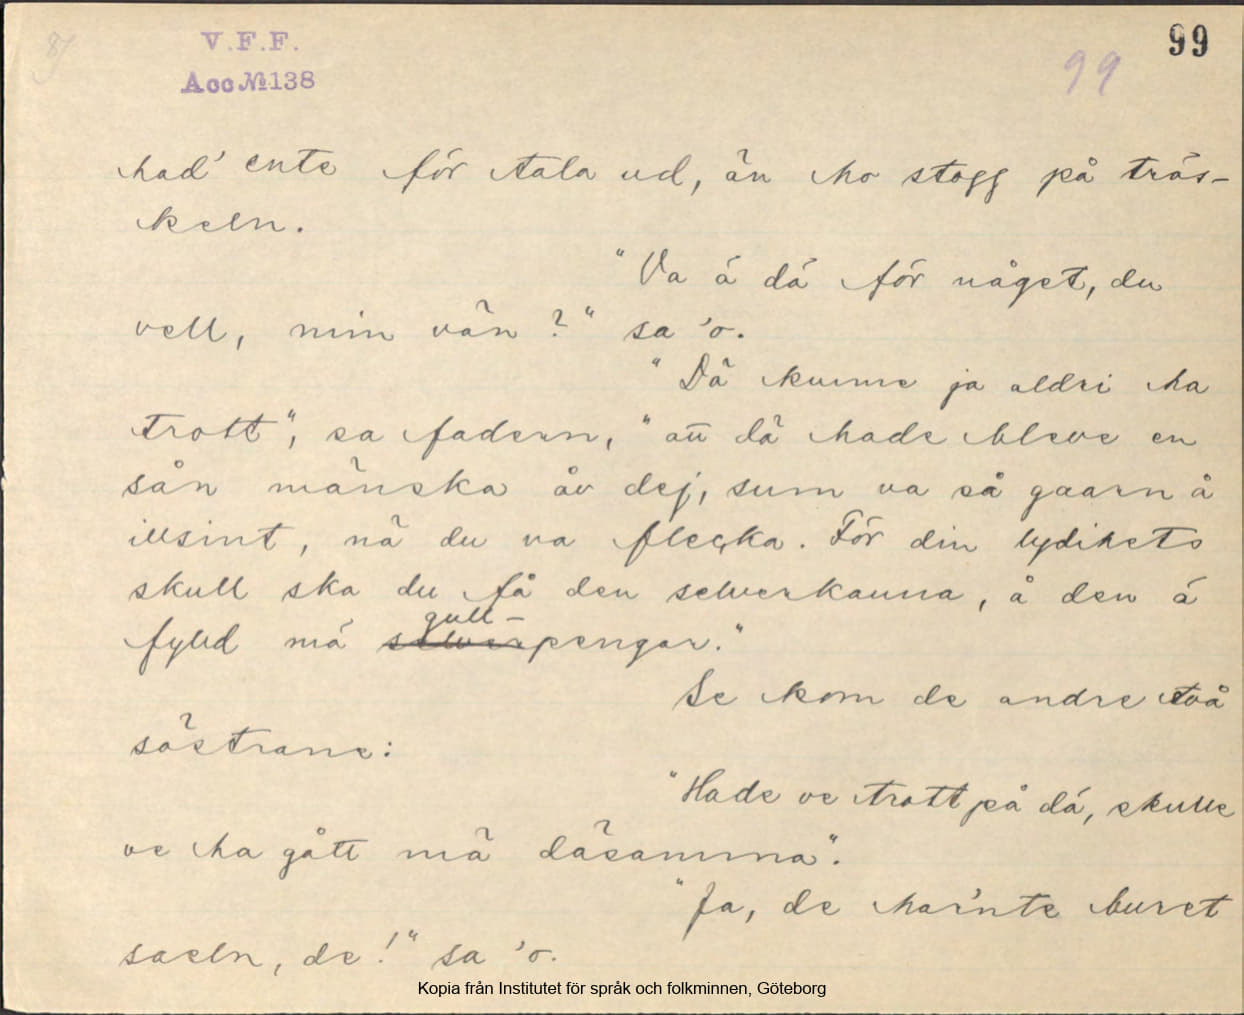 V.F.F.
Acc № 138
99
99
had' ente för tala ud, än ho stogg på trös-
keln.
"Va ä dä för någet, du
vell, min vän?" sa 'o.
"Dä kunne ja aldri ha
trott", sa fadern, "att dä hade bleve en
sån mänska åv dej, sum va så gaarn å
illsint, nä du va flecka. För din lydihets
skull ska du få den selverkanna, å den ä
gull-
fylld mä selverpengar."
Se kom de andre två
söstrane:
"Hade ve trott på dä, skulle
ve ha gått mä däsamma".
"Ja, de har'nte buret
saeln, de!" sa 'o.
Kopia från Institutet för språk och folkminnen, Göteborg